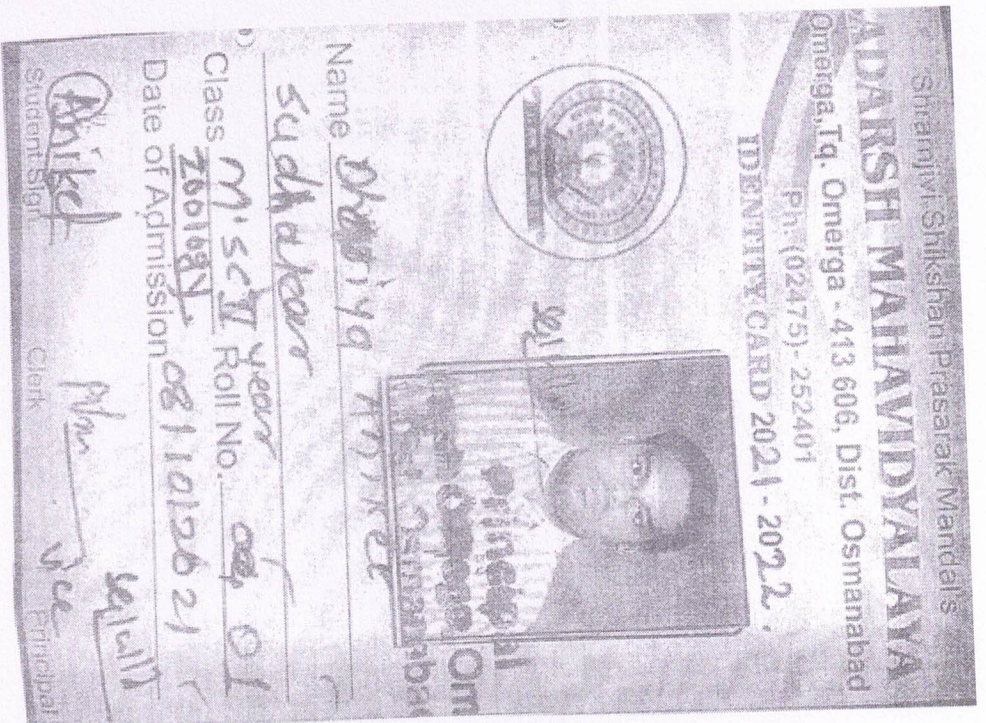 Sharnjivi Shikshan Prasarak Mandal's
ADARSH MAHAVIDYALAYA
Omerga, Tq. Omerga - 413 606, Dist. Osmanabad
Ph. (02475)- 252401
IDENTITY CARD 2021 - 2022.
Principal
Om
Osmanabad
Name Aniket
Sudhakar
Class M.Sc II Year Roll No. 01
Zoology
Date of Admission 08/10/2021
Aniket
Student Sign Clerk Vice Principal